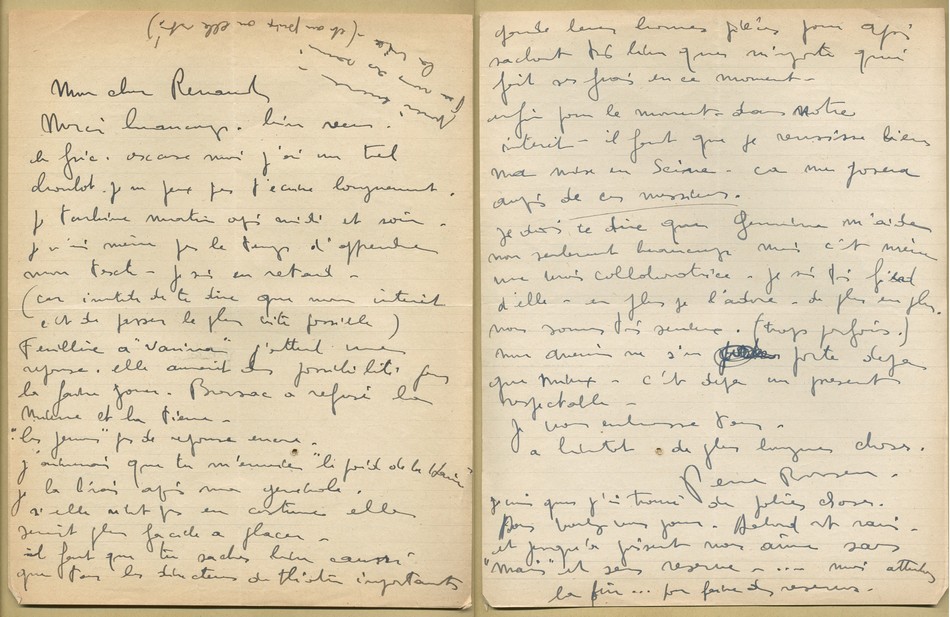 Mon cher Renaud
Merci beaucoup. bien reçu
le fric. excuse moi j'ai un tel
boulot. je ne peux pas t'écrire longuement.
je turbine matin après midi et soir.
je n'ai même pas le temps d'apprendre
mon texte - je suis en retard -
(car inutile de te dire que mon intérêt
est de passer le plus vite possible)
Feuillère a "Vanina" j'attend une
réponse. elle aurait des possibilités pour
la faire jouer. Barsac a refusé la
mienne et la tienne -
"les jeunes" pas de réponse encore.
j'aimerais que tu m'envoies "le poids de la
je la lirai après ma générale.
si elle n'est pas en costumes elle
serait plus facile a placer -
il faut que tu saches bien aussi
que tous les directeurs de théâtre importants
garde leurs bonnes pièces pour après
sachant très bien que n'importe quoi
fait ses frais en ce moment -
enfin pour le moment - dans notre
intérêt - il faut que je réussisse bien
ma mise en Scène - ça me posera
auprès de ces messieurs.
Je dois te dire que m'aide
non seulement beaucoup mais c'est même
une vraie collaboratrice - je suis très
d'elle - en plus je l'adore - de plus en plus.
nous sommes très sérieux. (trop parfois.)
mon avenir ne s'en porte déjà
que mieux - c'est déjà un présent
respectable -
Je vous embrasse tous -
a bientôt - de plus longues choses.
je crois que j'ai trouvé de jolies choses.
vous voyez un jour.
et jusqu'à présent nous aime sans
"mais" et sans réserve - .... mais attendez
la fin ... pour faire des réserves.